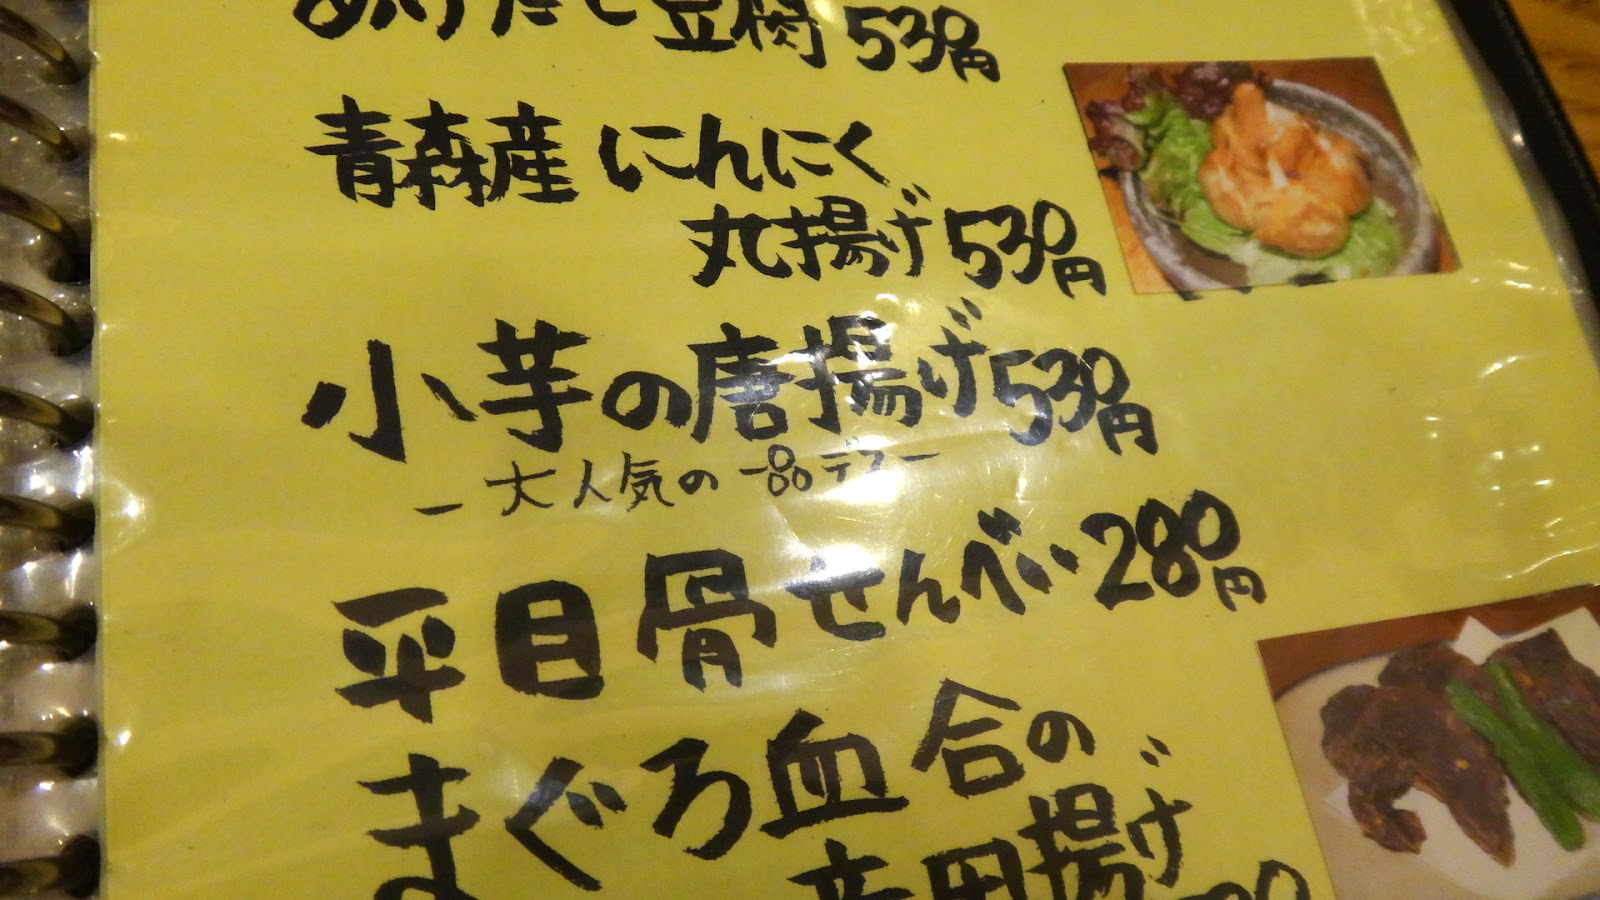 あげだし豆腐 530円
青森産 にんにく
丸揚げ 530円
小芋の唐揚げ 530円
ー大人気の一品デスー
平目骨せんべい 280円
まぐろ血合の
竜田揚げ